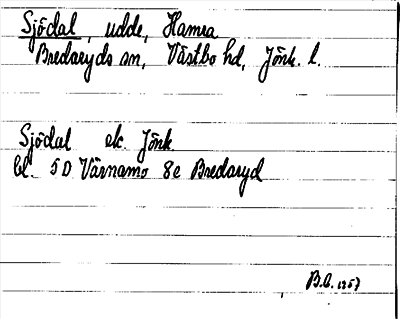 Sjödal, udde, Hamra
Bredaryds sn, Västbo hd, Jönk. l.
Sjödal ek. Jönk.
bl. 5D Värnamo 8e Bredaryd
B.C. 1957